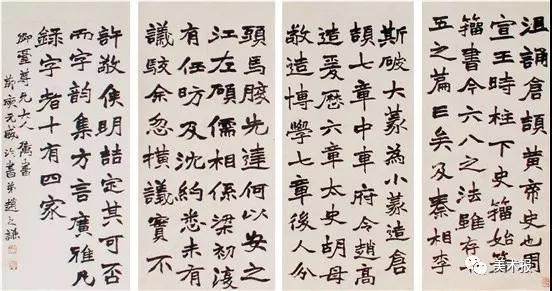 沮誦倉頡黃帝史也周
宣王時柱下史籀始
籀書今六八之法雖存
五之篇矣及秦相李
斯破大篆為小篆造倉
頡七章中車府令趙高
造爰歷六章太史胡母
敬造博學七章後人分
頭馬股先達何以安之
江左碩儒相係梁初復
有任昉及沈約悉未有
議駁余忽橫議實不
許敬侯明喆定其可否
而字韵集方言廣雅凡
錄字者十有四家
尊兄大人
書弟趙之謙
美术报